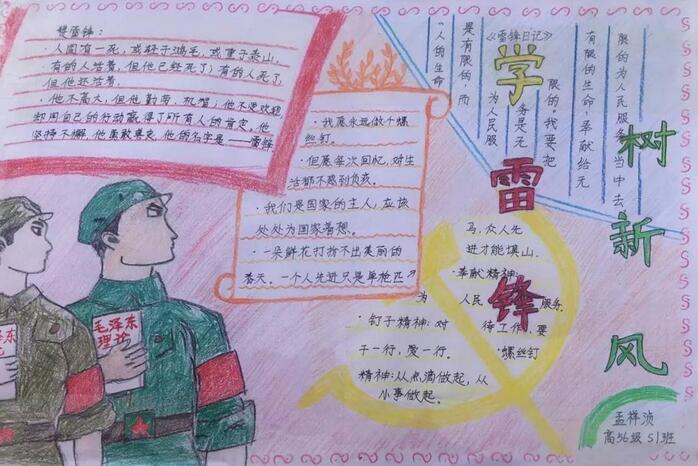 楚雷锋：
·人固有一死，或轻于鸿毛，或重于泰山，
有的人活着，但他已经死了；有的人死了，
但他还活着。
·他不高大，但他勤劳，机智；他不受欢迎，
却用自己的行动赢得了所有人的肯定。他
坚持不懈，他勇敢坚定，他的名字是——雷锋。
·我愿永远做个螺
丝钉。
·但愿每次回忆，对生
活都不感到负疚。
·我们是国家的主人，应该
处处为国家着想。
·一朵鲜花打扮不出美丽的
春天，一个人先进只是单枪匹
马，众人先
进才能填山。
·奉献精神：
为人民服务。
·钉子精神：对待工作，要
干一行，爱一行。
·螺丝钉
精神：从点滴做起，从
小事做起。
《雷锋日记》
“人的生命
是有限的，而
为人民服
务是无
限的，我要把
有限的生命，奉献给无
限的为人民服务当中去
学雷锋
树新风
毛泽东
理论
孟祥滨
高36级S1班